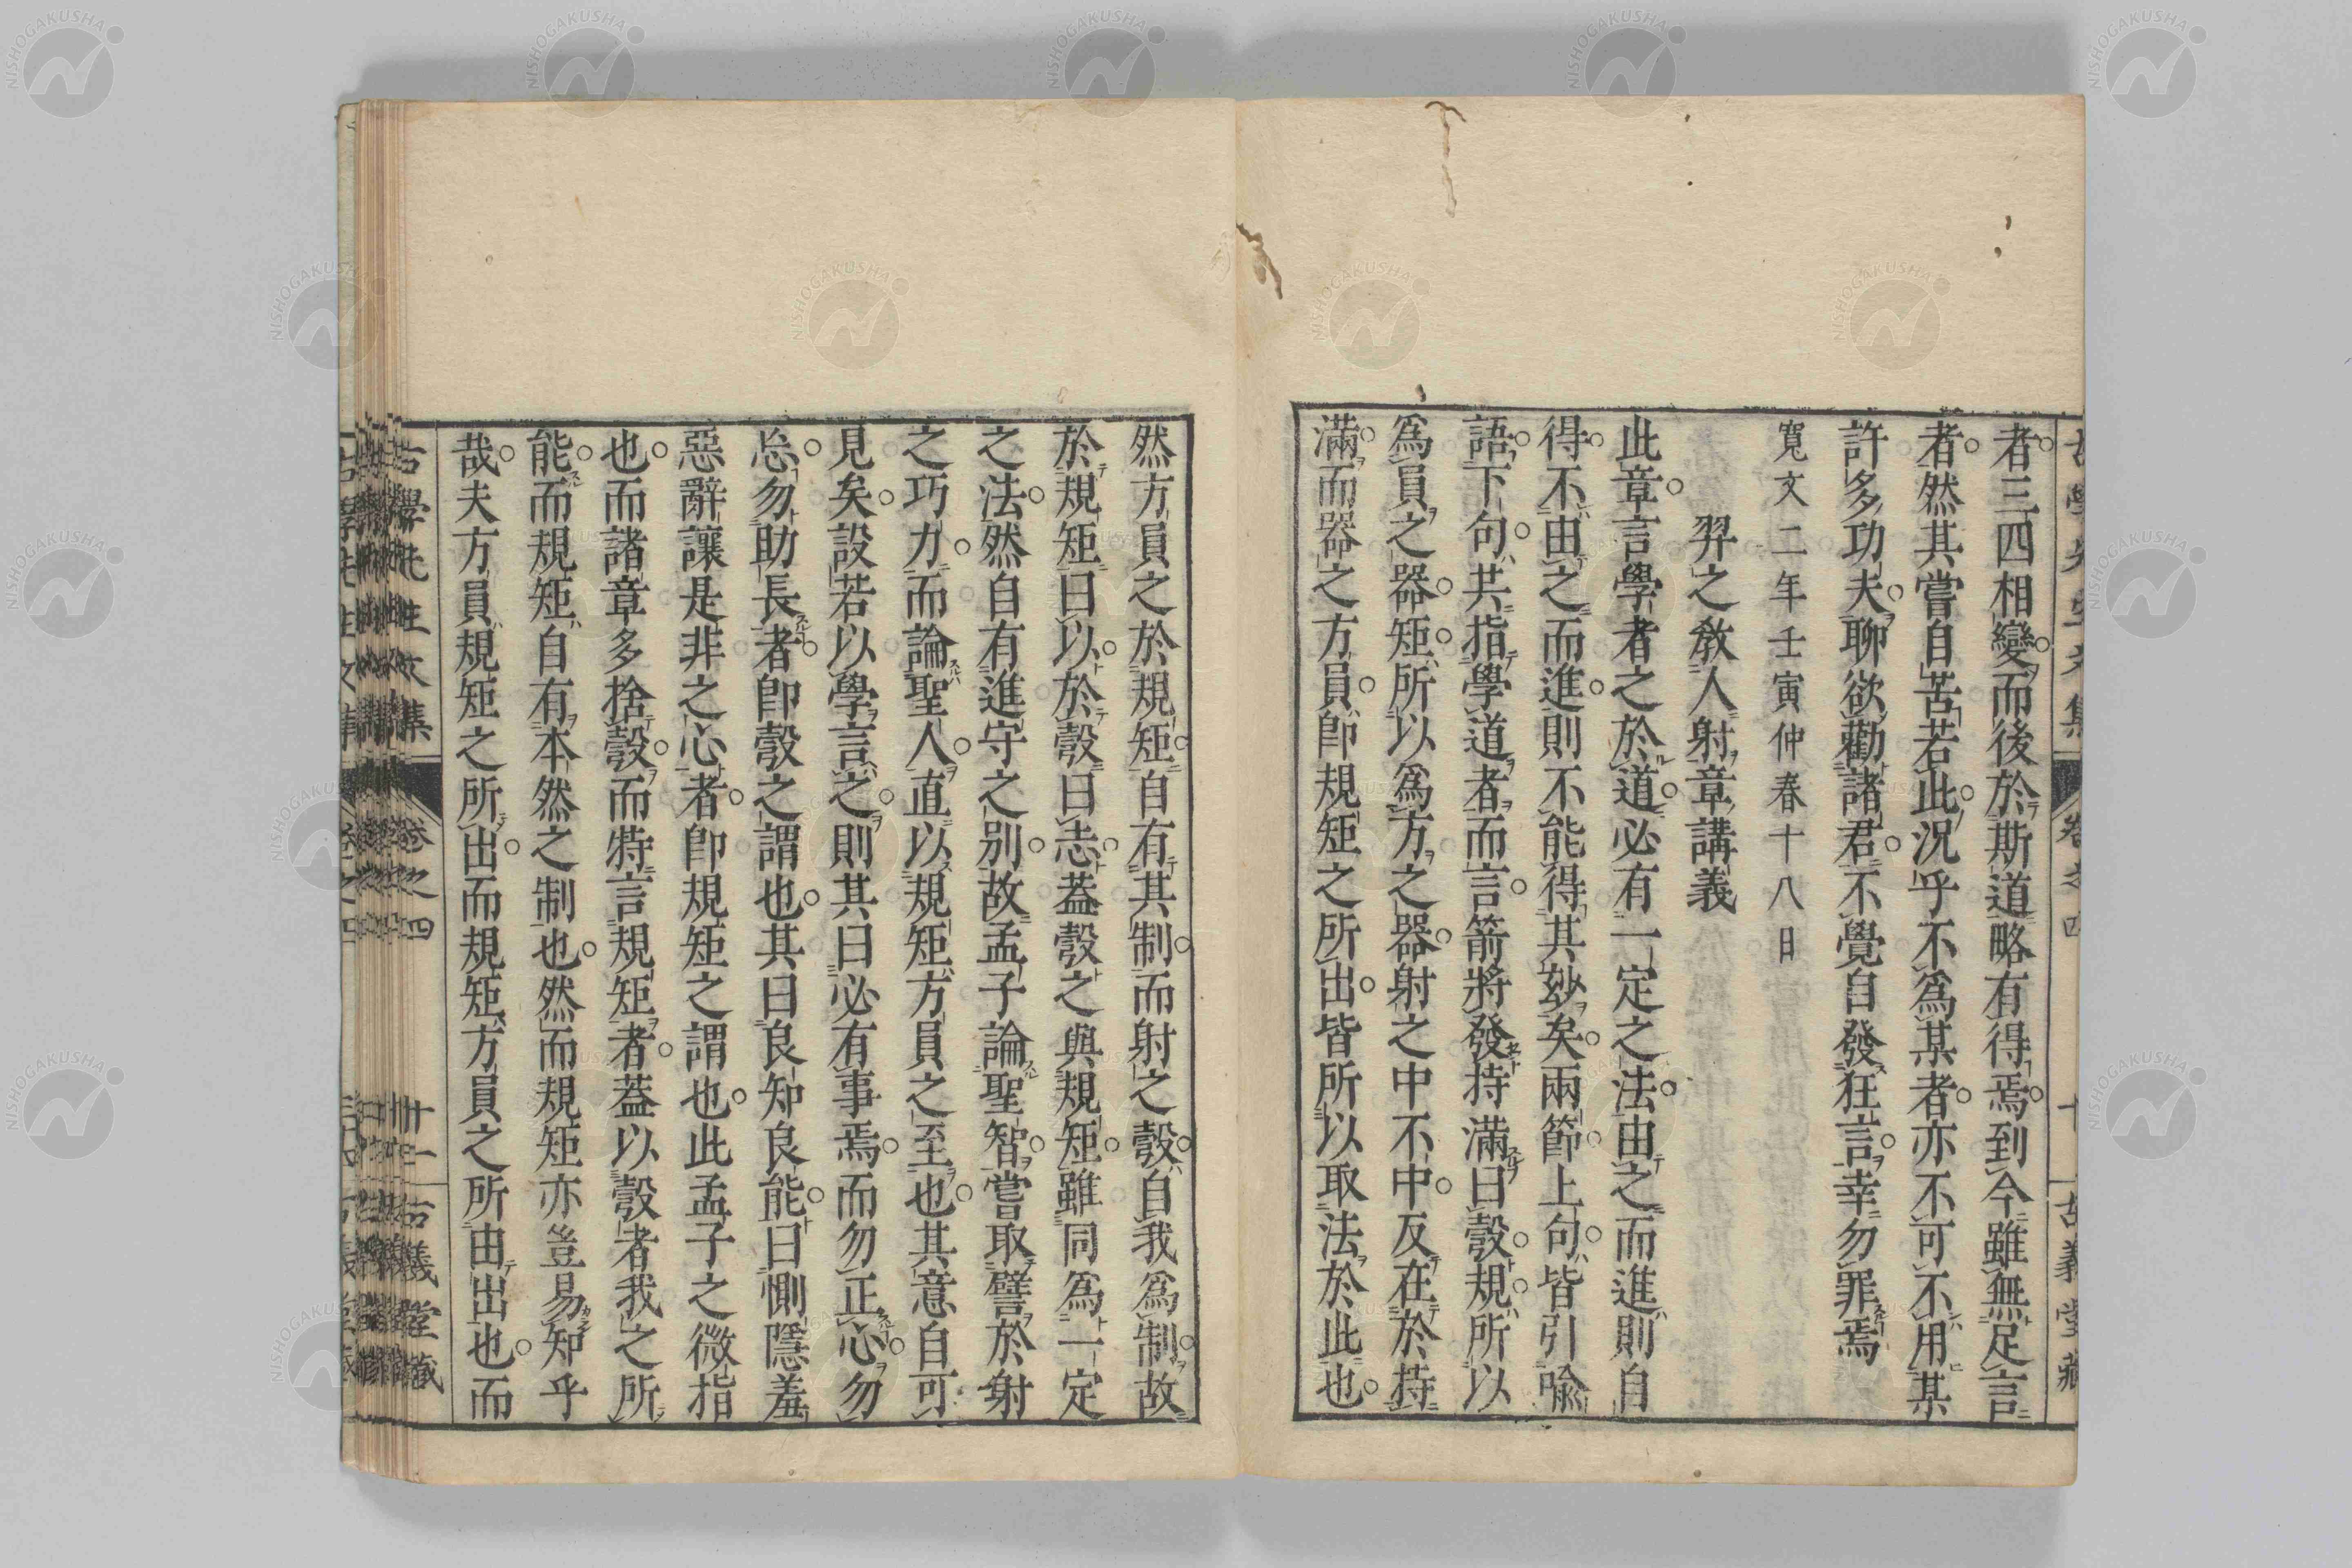 者三四相變而後於斯道略有得焉到今雖無足言
者然其嘗自苦若此況乎不爲某者亦不可不用某
許多功夫聊欲勸諸君不覺自發狂言幸勿罪焉
寬文二年壬寅仲春十八日
羿之敎人射章講義
此章言學者之於道必有一定之法由之而進則自
得不由之而進則不能得其妙矣兩節上句皆引喩
語下句共指學道者而言箭將發持滿曰彀規所以
爲員之器矩所以爲方之器射之中不中反在於持
滿而器之方員卽規矩之所出皆所以取法於此也
然方員之於規矩自有其制而射之彀自我爲制故
於規矩曰以於彀曰志蓋彀之與規矩雖同爲一定
之法然自有進守之別故孟子論聖智嘗取譬於射
之巧力而論聖人直以規矩方員之至也其意自可
見矣設若以學言之則其曰必有事焉而勿正心勿
忘勿助長者卽彀之謂也其曰良知良能曰惻隱羞
惡辭讓是非之心者卽規矩之謂也此孟子之微指
也而諸章多捨彀而特言規矩者蓋以彀者我之所
能而規矩自有本然之制也然而規矩亦豈易知乎
哉夫方員規矩之所出而規矩方員之所由出也而
古學先生文集
卷之四
十一
古義堂藏
NISHOGAKUSHA